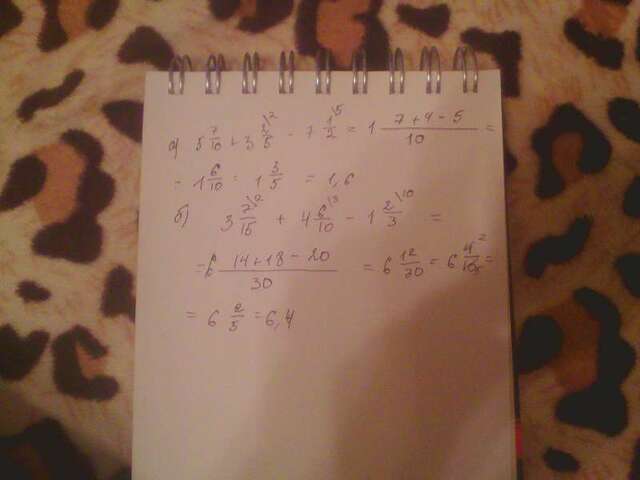 а) 5 7/10 + 3 2/5 \2 - 7 1/2 \5 = 1 (7+4-5)/10 =
= 1 6/10 = 1 3/5 = 1,6
б) 3 7/15 \2 + 4 6/10 \3 - 1 2/3 \10 =
= 6 (14+18-20)/30 = 6 12/30 = 6 4/10 \2 =
= 6 2/5 = 6,4